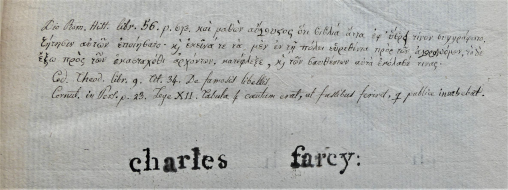 Dio Rom. Hist. libr. 56. p. καὶ μαθὼν ὅτι βιβλία ἄττα ἐφ' ὕβρει τινῶν συγγράφοιτο,
ζήτησιν αὐτῶν ἐποιήσατο· κ̀ ἐκεῖνά τε τὰ μὲν ἐν τῇ πόλει εὑρεθέντα πρὸς τῶν ἀγορανόμων, τὰ δὲ
ἔξω πρὸς τῶν ἑκασταχόθι ἀρχόντων, κατέφλεξε, κ̀ τῶν συνθέντων αὐτὰ ἐκόλασέ τινας.
Cod. Theod. libr. 9. tit. 34. De famosis libellis
Cornut. in Pers. p. 23. Lege XII. Tabula cautum erat, ut fustibus feriret, q publice invehebat.
charles farcy: